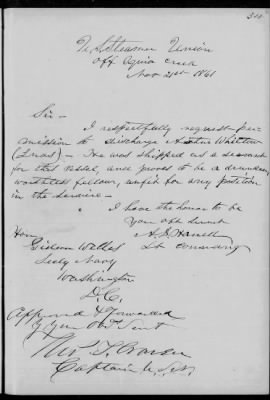 U.S. Steamer Union
off Aquia Creek
Nov 21st 1861
Sir-
I respectfully request per-
mission to discharge
- He was shipped as a
for this vessel, and proves to be a drunken
worthless fellow, unfit for any position
in the service -
I have the honor to be
Your obt Servt
Lt Comdg
Hon
Gideon Welles
Secty Navy
Washington
D.C.
Approved & forwarded
Yr obdt Svt
Captain U.S.N.